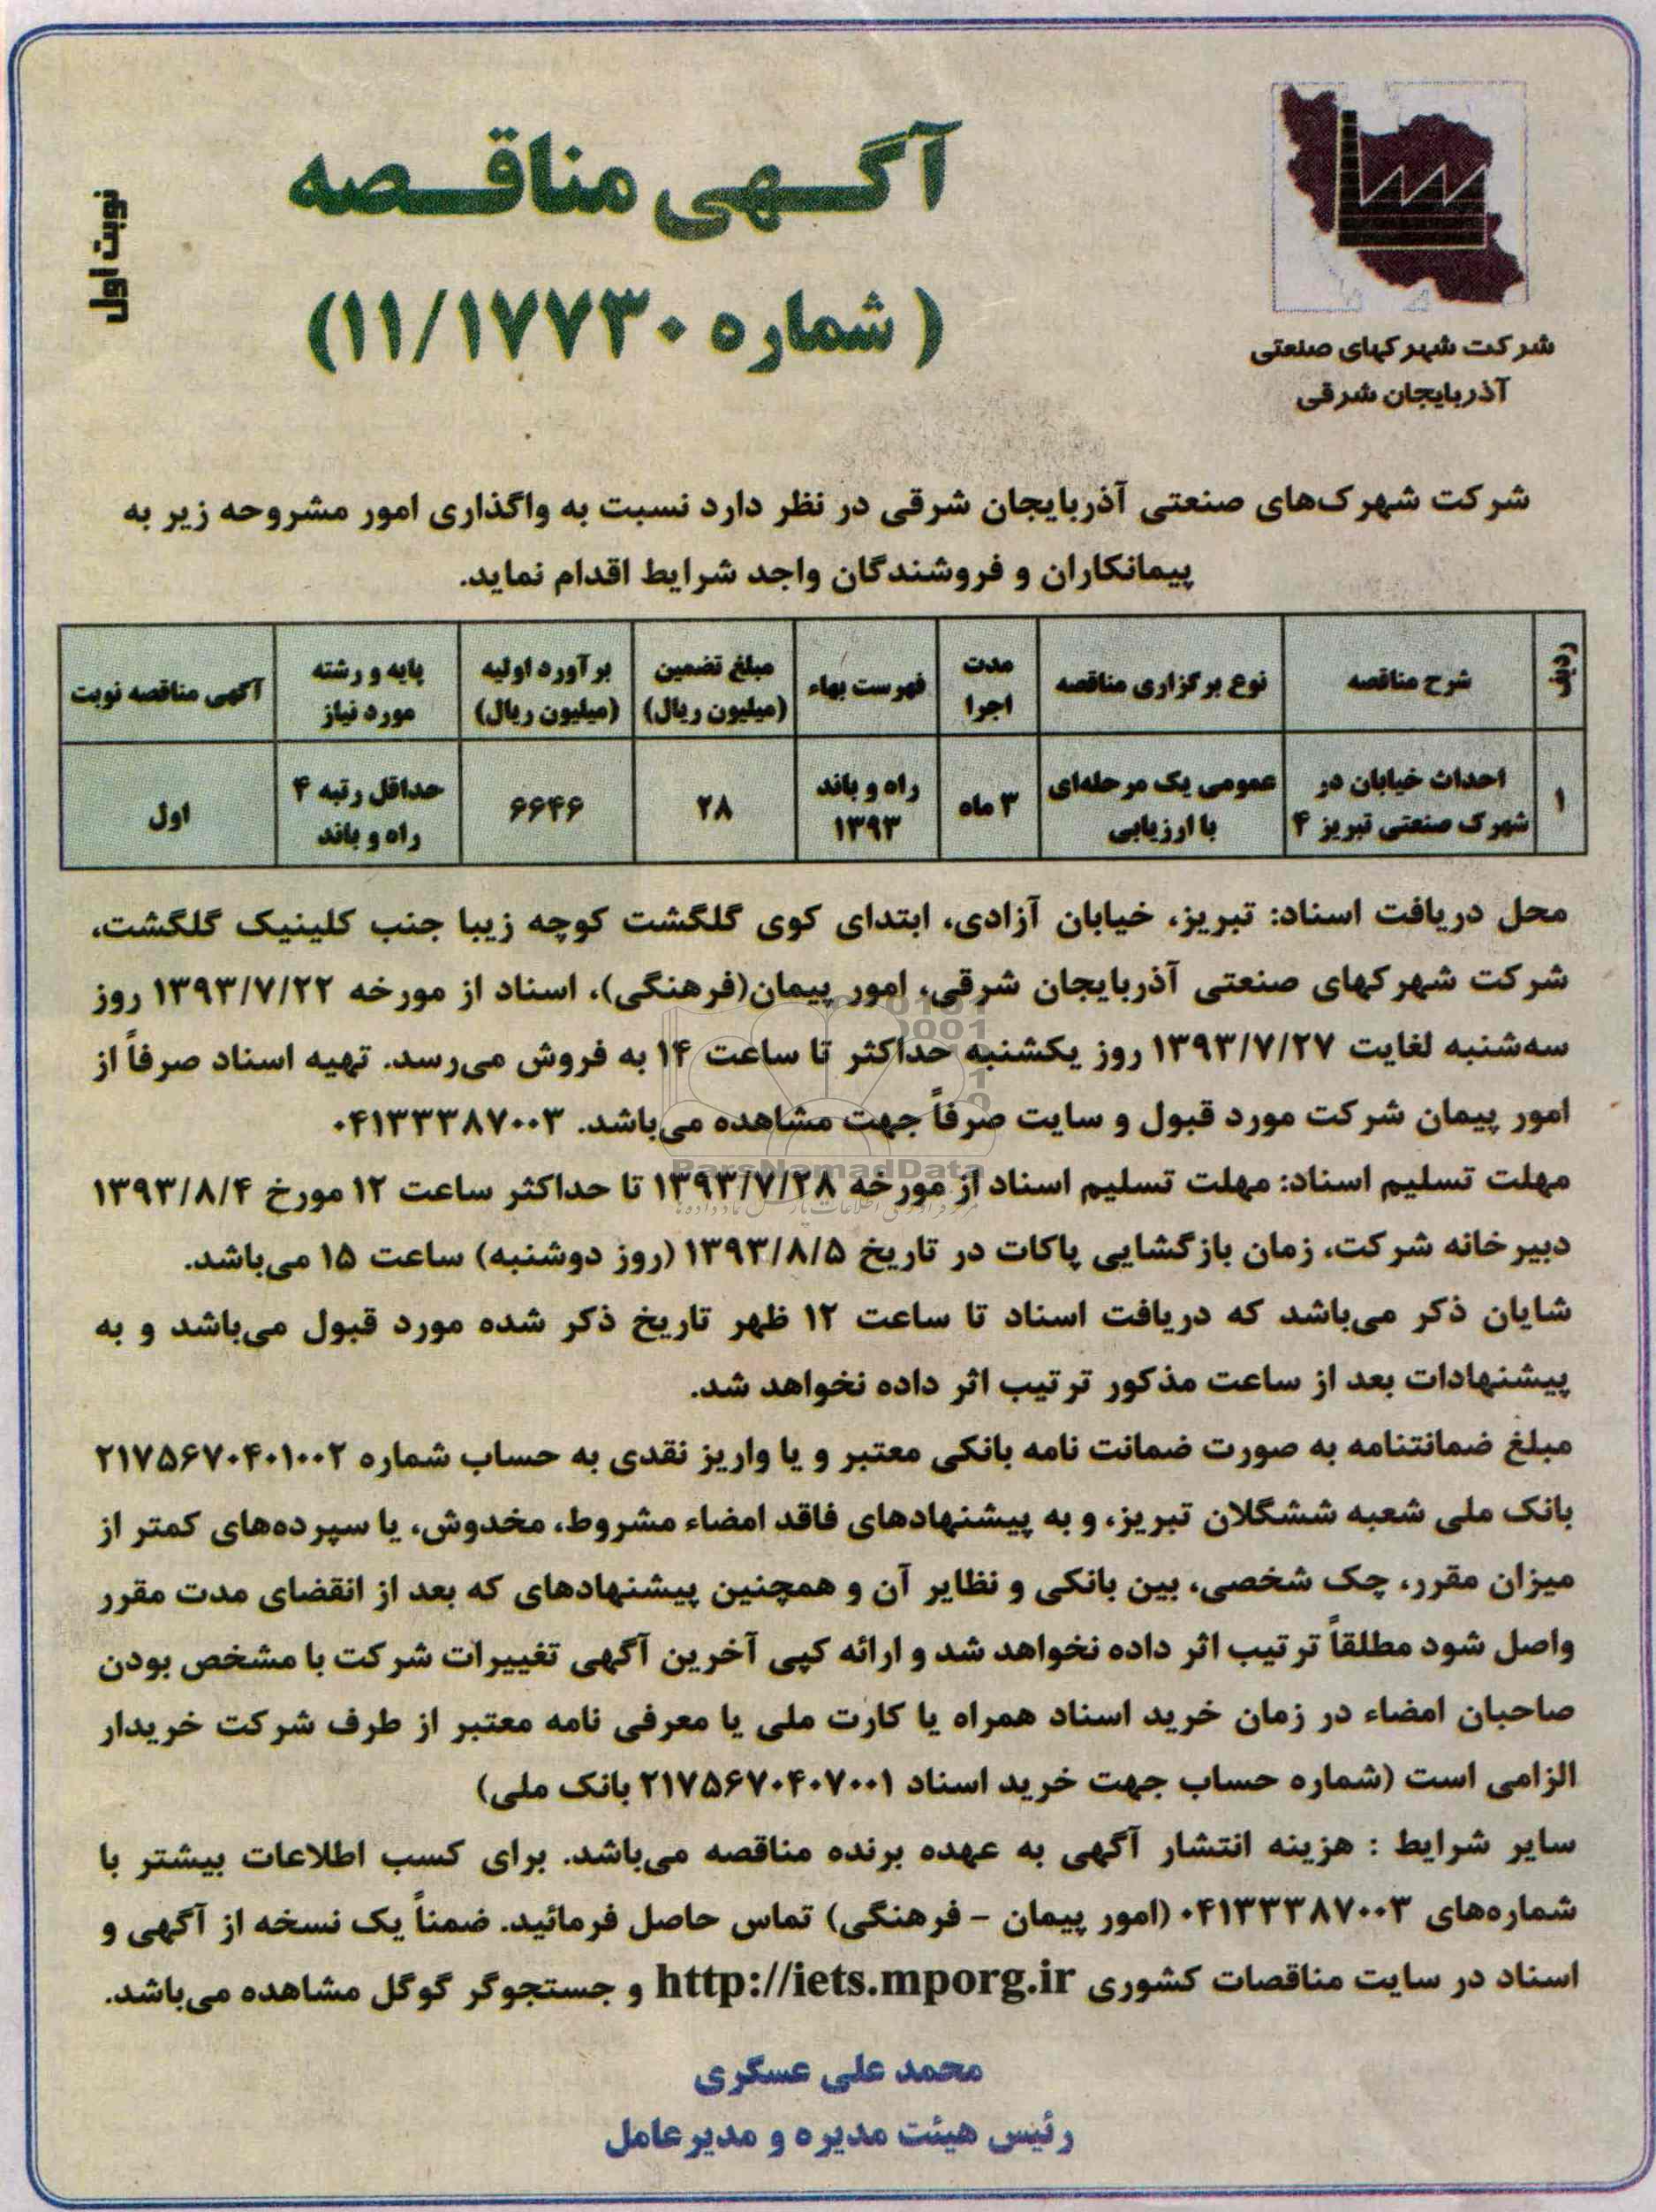 نوبت اول
آگهی مناقصه
(شماره ۱۱/۱۷۷۳۰)
شرکت شهرکهای صنعتی
آذربایجان شرقی
شرکت شهرک‌های صنعتی آذربایجان شرقی در نظر دارد نسبت به واگذاری امور مشروحه زیر به
پیمانکاران و فروشندگان واجد شرایط اقدام نماید.
ردیف | شرح مناقصه | نوع برگزاری مناقصه | مدت اجرا | فهرست بهاء | مبلغ تضمین (میلیون ریال) | برآورد اولیه (میلیون ریال) | پایه و رشته مورد نیاز | آگهی مناقصه نوبت
۱ | احداث خیابان در شهرک صنعتی تبریز ۴ | عمومی یک مرحله‌ای با ارزیابی | ۳ ماه | راه و باند ۱۳۹۳ | ۲۸ | ۶۶۴۶ | حداقل رتبه ۴ راه و باند | اول
محل دریافت اسناد: تبریز، خیابان آزادی، ابتدای کوی گلگشت کوچه زیبا جنب کلینیک گلگشت،
شرکت شهرکهای صنعتی آذربایجان شرقی، امور پیمان(فرهنگی)، اسناد از مورخه ۱۳۹۳/۷/۲۲ روز
سه‌شنبه لغایت ۱۳۹۳/۷/۲۷ روز یکشنبه حداکثر تا ساعت ۱۴ به فروش می‌رسد. تهیه اسناد صرفاً از
امور پیمان شرکت مورد قبول و سایت صرفاً جهت مشاهده می‌باشد. ۰۴۱۳۳۳۸۷۰۰۳
مهلت تسلیم اسناد: مهلت تسلیم اسناد از مورخه ۱۳۹۳/۷/۲۸ تا حداکثر ساعت ۱۲ مورخ ۱۳۹۳/۸/۴
دبیرخانه شرکت، زمان بازگشایی پاکات در تاریخ ۱۳۹۳/۸/۵ (روز دوشنبه) ساعت ۱۵ می‌باشد.
شایان ذکر می‌باشد که دریافت اسناد تا ساعت ۱۲ ظهر تاریخ ذکر شده مورد قبول می‌باشد و به
پیشنهادات بعد از ساعت مذکور ترتیب اثر داده نخواهد شد.
مبلغ ضمانتنامه به صورت ضمانت نامه بانکی معتبر و یا واریز نقدی به حساب شماره ۲۱۷۵۶۷۰۴۰۱۰۰۲
بانک ملی شعبه ششگلان تبریز، و به پیشنهادهای فاقد امضاء مشروط، مخدوش، یا سپرده‌های کمتر از
میزان مقرر، چک شخصی، بین بانکی و نظایر آن و همچنین پیشنهادهای که بعد از انقضای مدت مقرر
واصل شود مطلقاً ترتیب اثر داده نخواهد شد و ارائه کپی آخرین آگهی تغییرات شرکت با مشخص بودن
صاحبان امضاء در زمان خرید اسناد همراه یا کارت ملی یا معرفی نامه معتبر از طرف شرکت خریدار
الزامی است (شماره حساب جهت خرید اسناد ۲۱۷۵۶۷۰۴۰۷۰۰۱ بانک ملی)
سایر شرایط : هزینه انتشار آگهی به عهده برنده مناقصه می‌باشد. برای کسب اطلاعات بیشتر با
شماره‌های ۰۴۱۳۳۳۸۷۰۰۳ (امور پیمان - فرهنگی) تماس حاصل فرمائید. ضمناً یک نسخه از آگهی و
اسناد در سایت مناقصات کشوری http://iets.mporg.ir و جستجوگر گوگل مشاهده می‌باشد.
محمد علی عسگری
رئیس هیئت مدیره و مدیرعامل
ParsNamadData